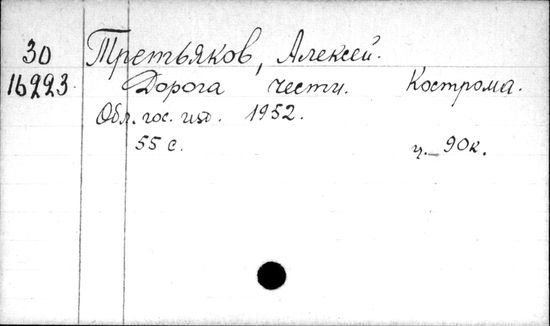 30 Третьяков, Алексей.
16223. Дорога чести. Кострома.
Обл. гос. изд. 1952.
55 с. ц. 90к.